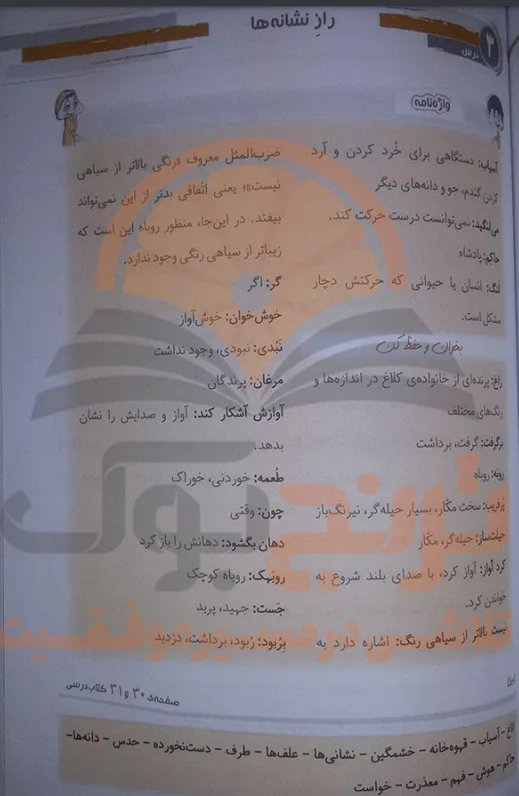 راز نشانه‌ها
درس ۳
واژه‌نامه
آسیاب: دستگاهی برای خُرد کردن و آرد
کردن گندم، جو و دانه‌های دیگر
می‌لنگید: نمی‌توانست درست حرکت کند.
حاکم: پادشاه
لنگ: انسان یا حیوانی که حرکتش دچار
مشکل است.
بخوان و حفظ کن
زاغ: پرنده‌ای از خانواده‌ی کلاغ در اندازه‌ها و
رنگ‌های مختلف
برگرفت: گرفت، برداشت
روبه: روباه
پرفریب: سخت مکّار، بسیار حیله‌گر، نیرنگ‌باز
حیلت‌ساز: حیله‌گر، مکّار
کرد آواز: آواز کرد، با صدای بلند شروع به
خواندن کرد.
نیست بالاتر از سیاهی رنگ: اشاره دارد به
ضرب‌المثل معروف «رنگی بالاتر از سیاهی
نیست»؛ یعنی اتّفاقی بدتر از این نمی‌تواند
بیفتد. در این‌جا، منظور روباه این است که
زیباتر از سیاهی رنگی وجود ندارد.
گر: اگر
خوش‌خوان: خوش‌آواز
نَبُدی: نبودی، وجود نداشت
مرغان: پرندگان
آوازش آشکار کند: آواز و صدایش را نشان
بدهد.
طُعمه: خوردنی، خوراک
چون: وقتی
دهان بگشود: دهانش را باز کرد
روبَهک: روباه کوچک
جَست: جهید، پرید
بِرُبود: رُبود، برداشت، دزدید
املا
صفحه‌ی ۳۰ و ۳۱ کتاب درسی
الاغ – آسیاب – قهوه‌خانه – خشمگین – نشانی‌ها – علف‌ها – طرف – دست‌نخورده – حدس – دانه‌ها –
حاکم – هوش – فهم – معذرت – خواست
نارنج بوک
تلاش در مسیر موفقیت